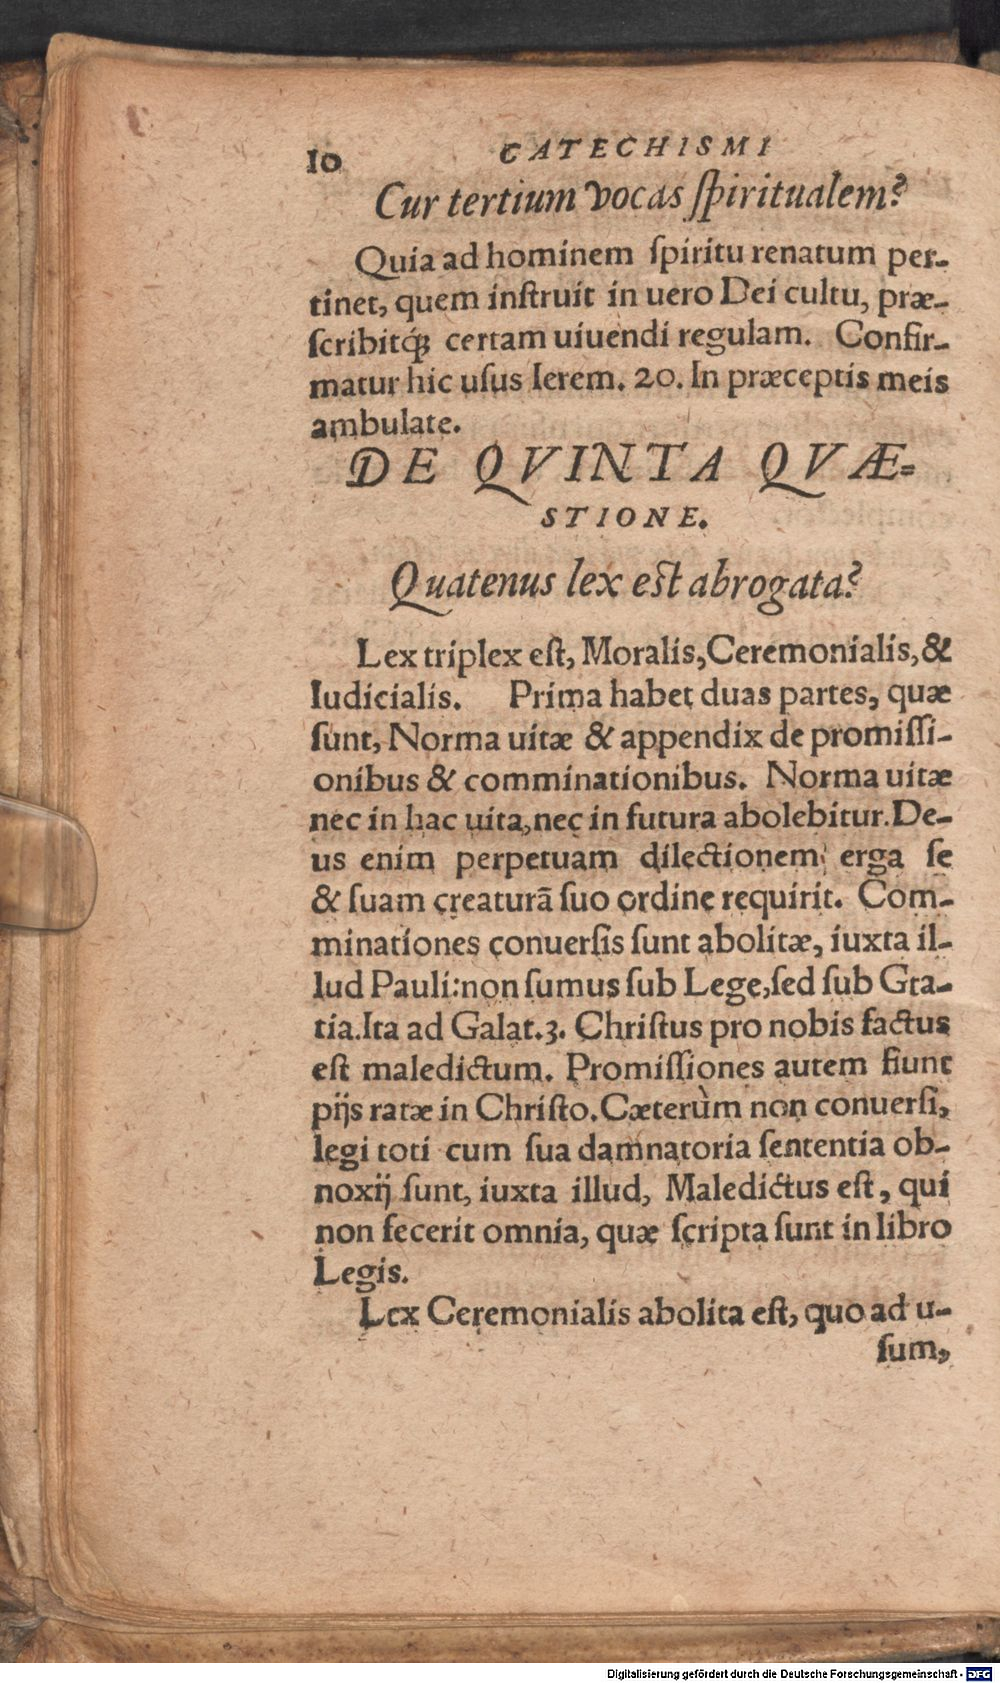 10 CATECHISMI
Cur tertium vocas ſpiritualem?
Quia ad hominem ſpiritu renatum per-
tinet, quem inſtruit in uero Dei cultu, præ-
ſcribitq́ꝫ certam uiuendi regulam. Confir-
matur hic uſus Ierem. 20. In præceptis meis
ambulate.
DE QVINTA QVÆ=
STIONE.
Quatenus lex eſt abrogata?
Lex triplex eſt, Moralis, Ceremonialis, &
Iudicialis. Prima habet duas partes, quæ
ſunt, Norma uitæ & appendix de promiſſi-
onibus & comminationibus. Norma uitæ
nec in hac uita, nec in futura abolebitur. De-
us enim perpetuam dilectionem erga ſe
& ſuam creaturā ſuo ordine requirit. Com-
minationes conuerſis ſunt abolitæ, iuxta il-
lud Pauli: non ſumus ſub Lege, ſed ſub Gra-
tia. Ita ad Galat. 3. Chriſtus pro nobis factus
eſt maledictum. Promiſſiones autem fiunt
pijs ratæ in Chriſto. Cæterùm non conuerſi,
legi toti cum ſua damnatoria ſententia ob-
noxij ſunt, iuxta illud, Maledictus eſt, qui
non fecerit omnia, quæ ſcripta ſunt in libro
Legis.
Lex Ceremonialis abolita eſt, quo ad u-
ſum,
Digitalisierung gefördert durch die Deutsche Forschungsgemeinschaft - DFG